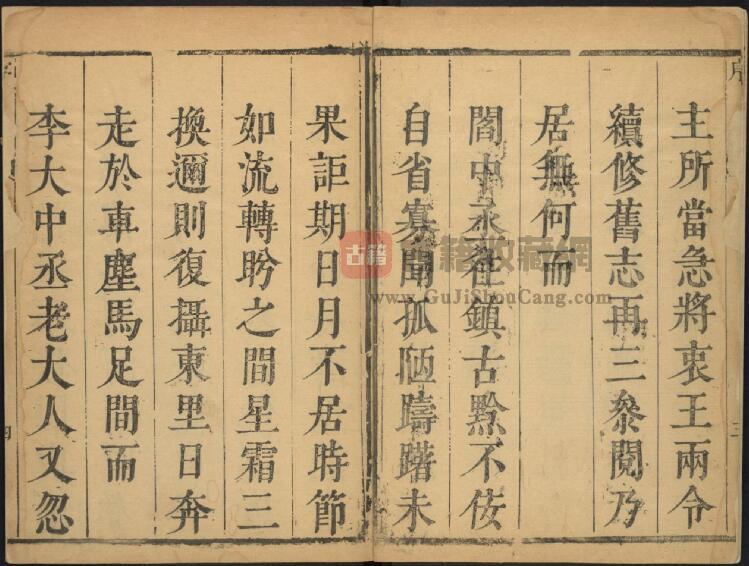 序
主所當急將衷王兩令
續修舊志再三叅閱乃
居無何而
閻中丞徃鎮古黔不佞
自省寡聞孤陋躊躇未
三
果詎期日月不居時節
如流轉盻之間星霜三
換邇則復攝東里日奔
走於車塵馬足間而
李大中丞老大人又忽
四
古籍
籍收藏網
www.GuJiShouCang.com